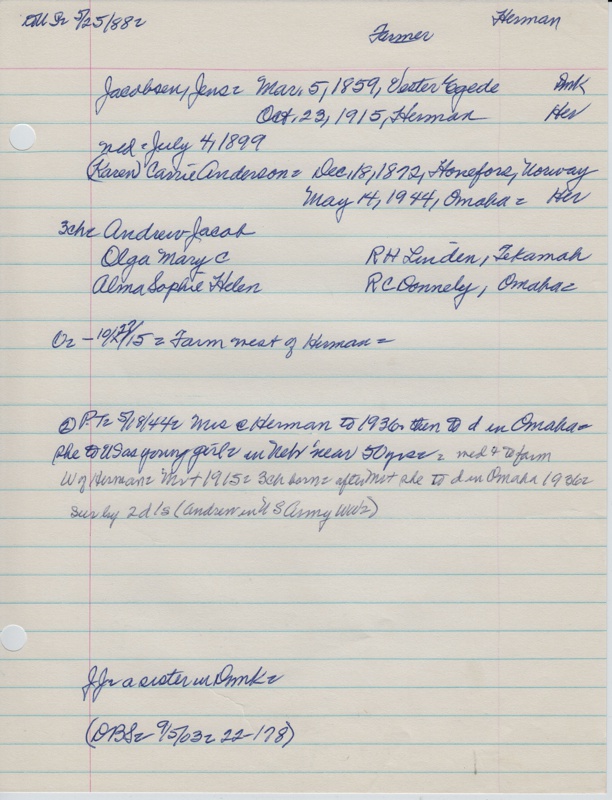 5/25/88= Farmer Herman
Jacobsen, Jens= Mar. 5, 1859, Vester Egede Dmk
Oct. 23, 1915, Herman Her
med= July 4, 1899
(Karen) Carrie Anderson= Dec, 18, 1872, Honefors, Norway
May 14, 1944, Omaha= Her
3ch= Andrew Jacob
Olga Mary C R H Linden, Tekamah
Alma Sophie Helen R C Donnely, Omaha=
O= - 10/27/15= Farm west of Herman=
② P.T= 5/18/44= Mrs @ Herman to 1936, then to d in Omaha=
she to US as young girl= in Nebr near 50 yrs= med & to farm
W of Herman= Mr + 1915= 3ch born= after Mr + she to d in Omaha 1936=
sur by 2d 1s (Andrew in US Army WW2)
JJ= a sister in Dmk=
(DBS= 9/5/03= 22-178)